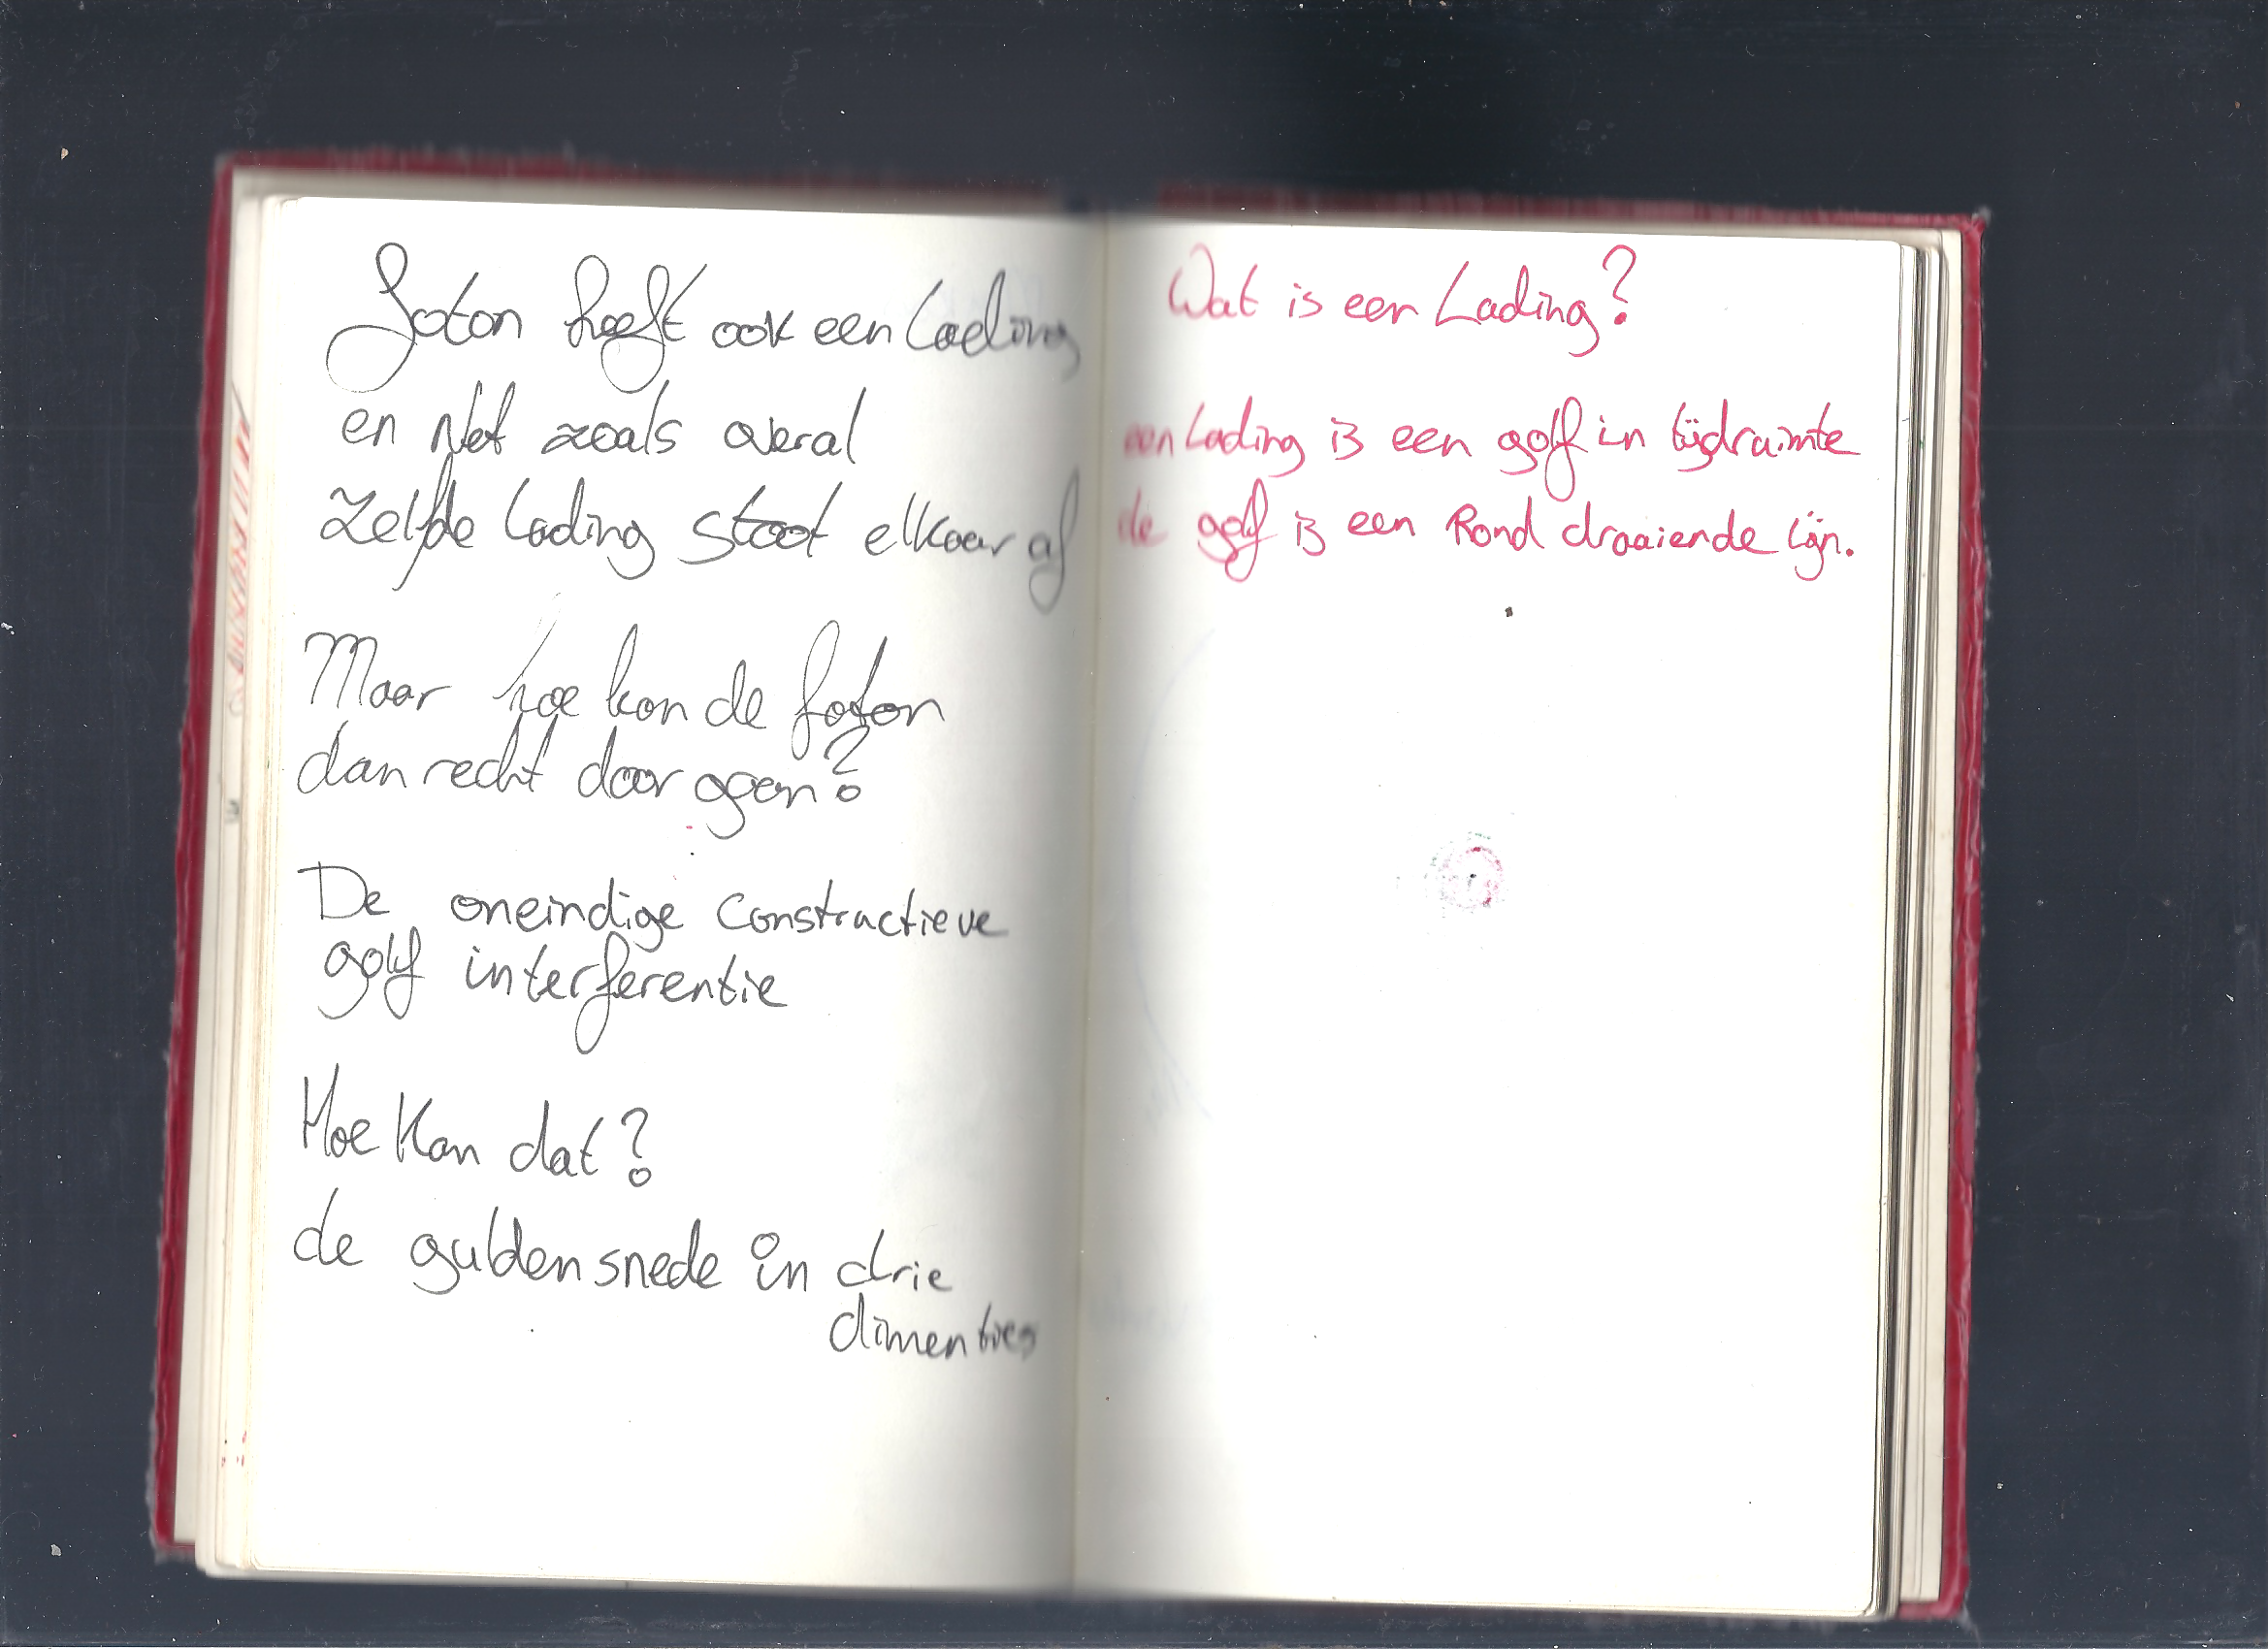 foton heeft ook een lading
en Net zoals overal
zelfde lading stoot elkaar af
Maar hoe kan de foton
dan recht door gaan?
De oneindige constructieve
golf interferentie
Hoe kan dat?
de gulden snede in drie
dimenties
Wat is een Lading?
een Lading is een golf in tijdruimte
de golf is een Rond draaiende lijn.